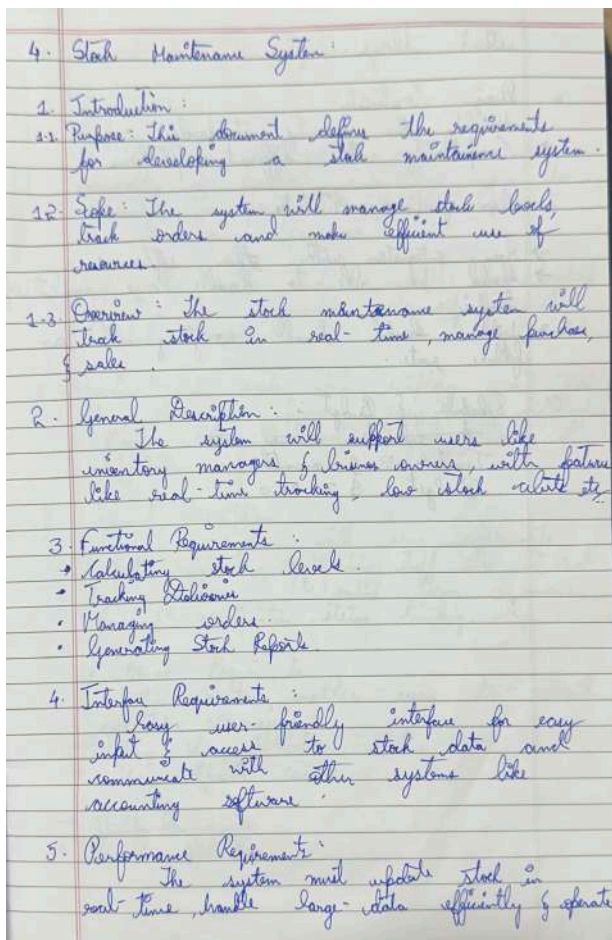 4. Stock Maintenance System:
1. Introduction:
1.1. Purpose: This document defines the requirements
for developing a stock maintainence system.
1.2. Scope: The system will manage stock levels,
track orders and make efficient use of
resources.
1.3. Overview: The stock maintenance system will
track stock in real-time, manage purchase,
& sales.
2. General Description:
The system will support users like
inventory managers, & business owners, with features
like real-time tracking, low stock alerts etc.
3. Functional Requirements:
• Calculating stock levels.
• Tracking Deliveries
• Managing orders.
• Generating Stock Reports.
4. Interface Requirements:
Easy user-friendly interface for easy
input & access to stock data and
communicate with other systems like
accounting software.
5. Performance Requirements:
The system must update stock in
real-time, handle large-data efficiently & operate